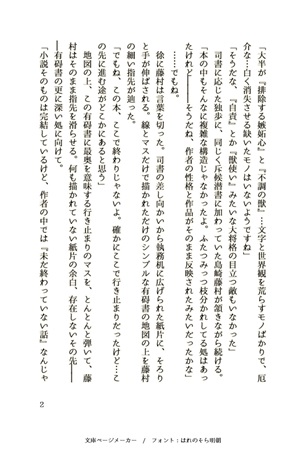 「大半が『排除する嫉妬心』と『不調の獣』…文字と世界観を荒らすモノばかりで、厄
介な…白く消失させる欠いたモノはいないようですね」
「そうだな、『自責』とか『獣使い』みたいな大将格の目立つ敵もいなかった」
　司書に応じた独歩に、同じく斥候潜書に加わっていた島崎藤村が頷きながら続ける。
「本の中もそんなに複雑な構造じゃなかったよ。ふたつみっつ枝分かれしてる処はあっ
たけれど――そうだね、作者の性格と作品がそのまま反映されたみたいだったかな」
　……でもね。
　徐に藤村は言葉を切った。司書の差し向かいから執務机に広げられた紙片に、そろり
と手が伸ばされる。線とマスだけで描かれただけのシンプルな有碍書の地図の上を藤村
の細い指先が辿った。
「でもね、この本、ここで終わりじゃないよ。確かにここで行き止まりだったけど…こ
の先に進む途がどこかにあると思う」
　地図の上、この有碍書に最奥を意味する行き止まりのマスを、とんとんと弾いて、藤
村はそのまま指先を滑らせる。何も描かれていない紙片の余白、存在しないその先――
――有碍書の更に深い処に向けて。
「小説そのものは完結しているけど、作者の中では『未だ終わっていない話』なんじゃ
2
文庫ページメーカー　/　フォント：はれのそら明朝